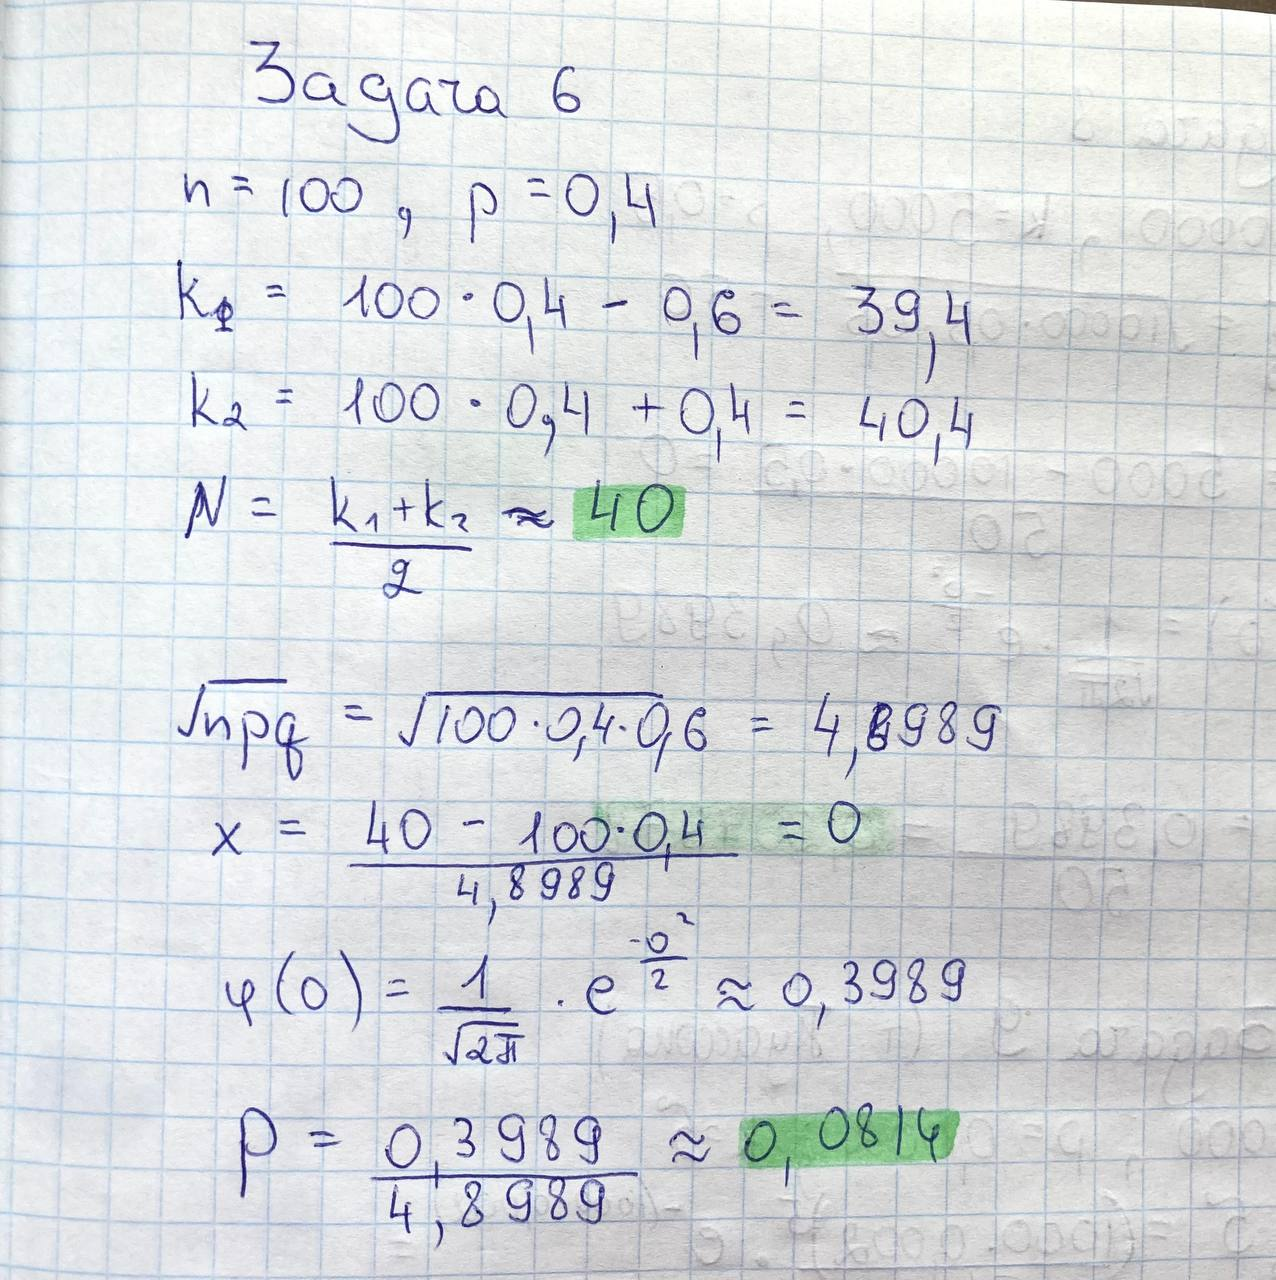 Задача 6
n = 100, p = 0,4
k₁ = 100 · 0,4 - 0,6 = 39,4
k₂ = 100 · 0,4 + 0,4 = 40,4
N = (k₁ + k₂)/2 ≈ 40
√npq = √100·0,4·0,6 = 4,8989
x = (40 - 100·0,4)/4,8989 = 0
φ(0) = 1/√2π · e^(-0²/2) ≈ 0,3989
P = 0,3989/4,8989 ≈ 0,0814